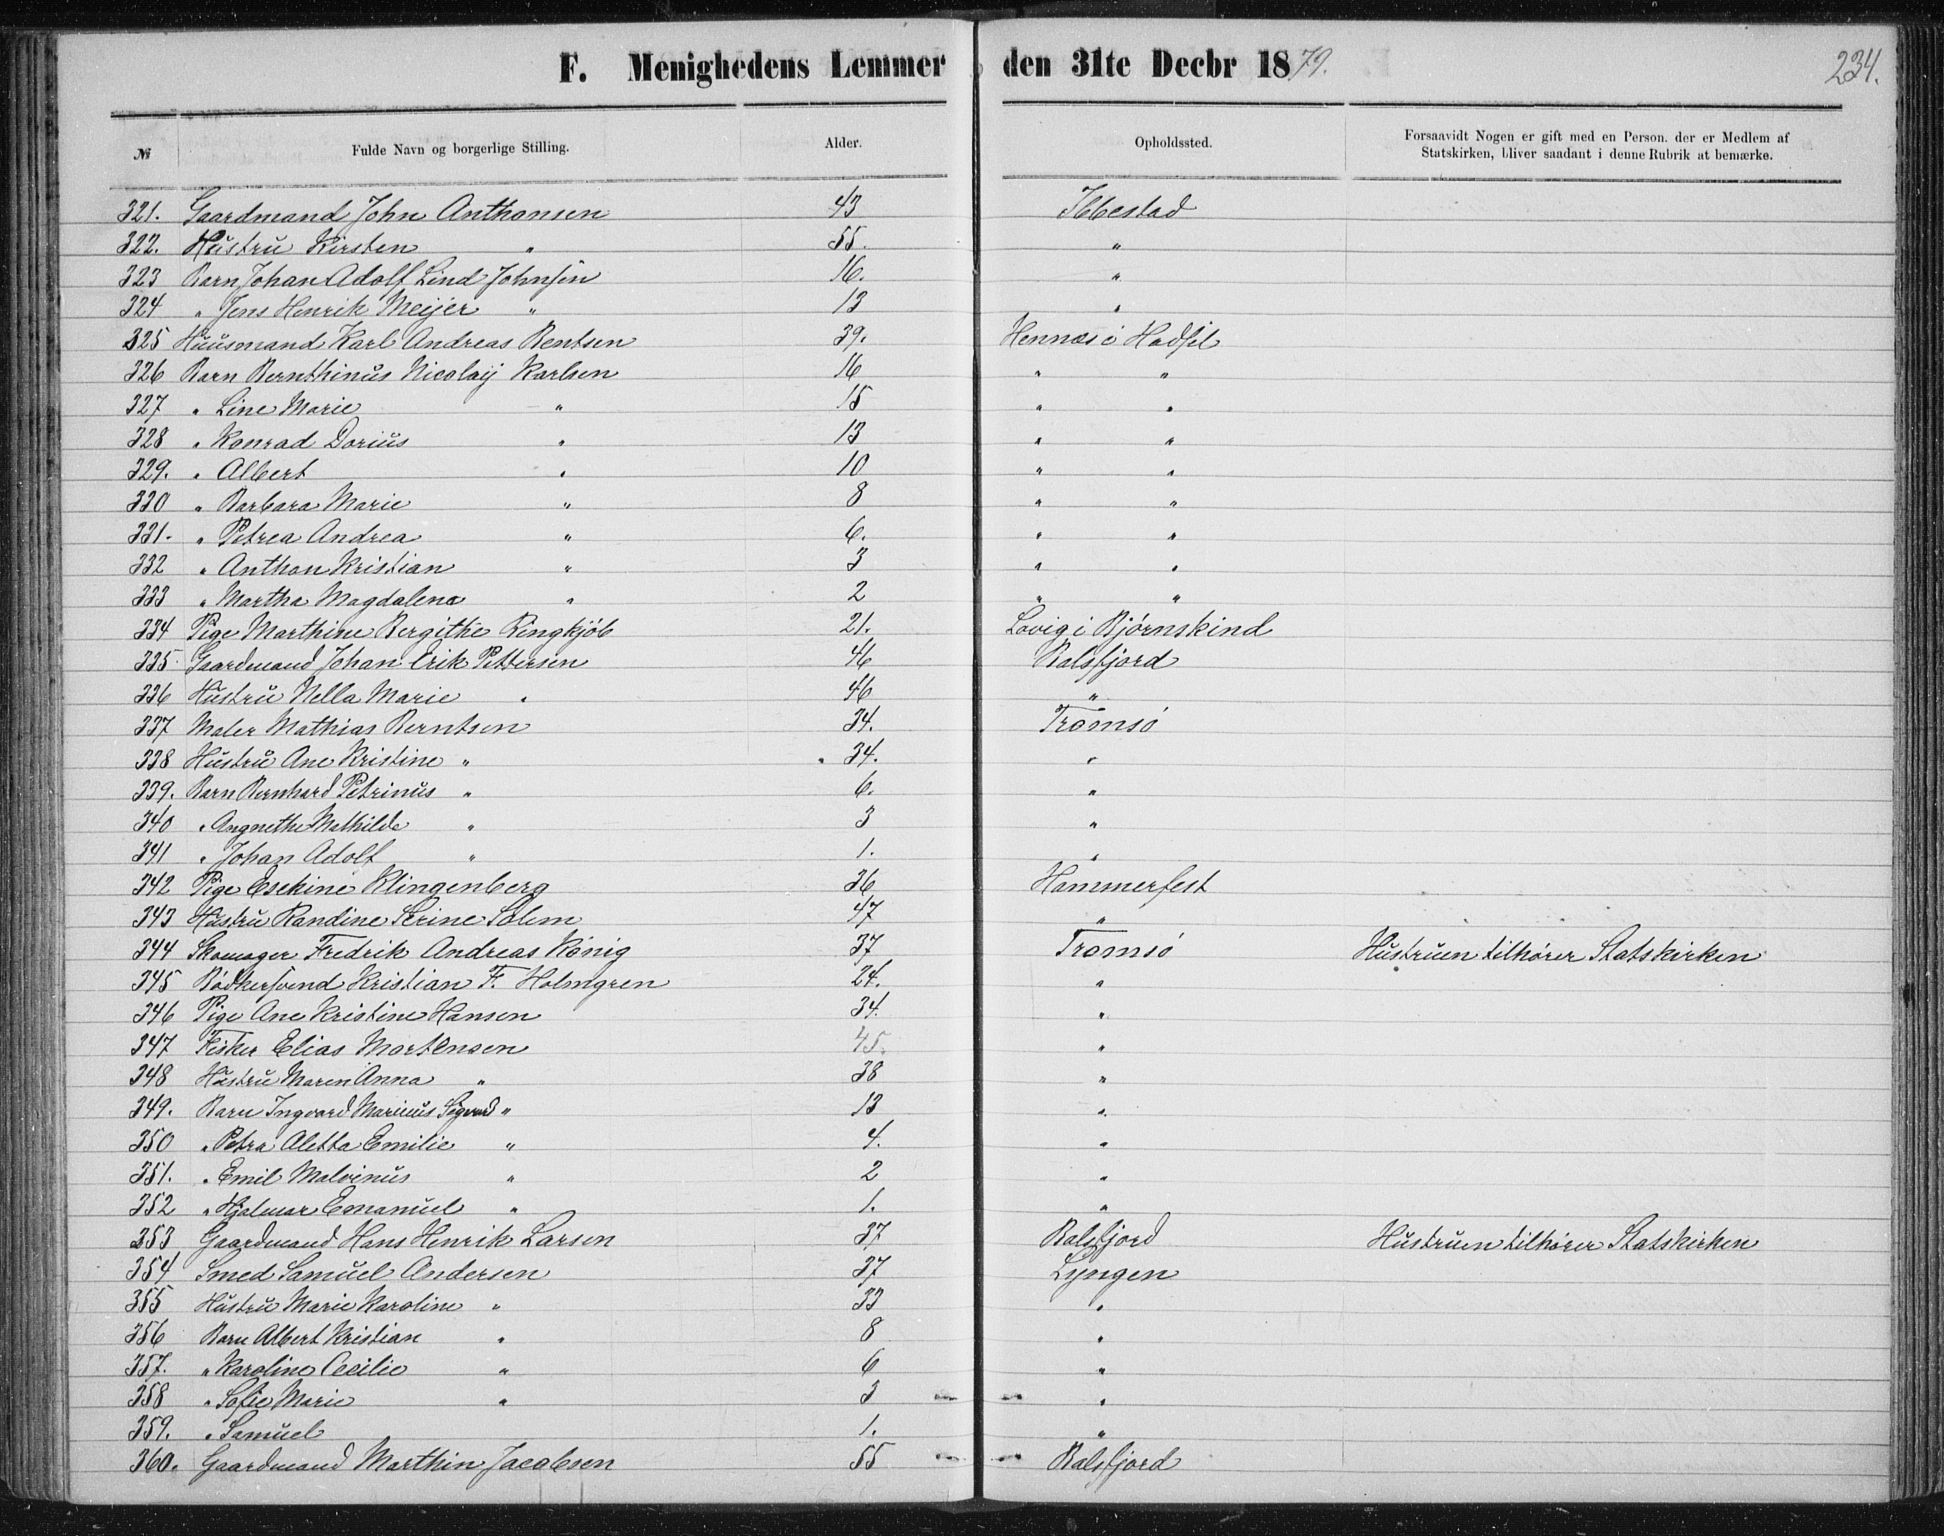 F. Menighedens Lemmer den 31te Decbr 1879.
234.
№ Fulde Navn og borgerlige Stilling. Alder. Opholdssted. Forsaavidt Nogen er gift med en Person, der er Medlem af
Statskirken, bliver saadant i denne Rubrik at bemærke.
321. Gaardmand John Anthonsen 43 Ibbestad
322. Hustru Kirsten " 55. "
323 Barn Johan Adolf Lind Johnsen 16. "
324 " Jens Henrik Meijer " 13 "
325 Huusmand Karl Andreas Bentsen 39. Hennæs i Hadsel
326 Barn Bernthinus Nicolaij Karlsen 16 " "
327 " Line Marie " 15 " "
328 " Konrad Dorius " 13 " "
329. " Albert " 10 " "
330 " Barbara Marie " 8 " "
331. " Petrea Andrea " 6. " "
332 " Anthon Kristian " 3 " "
333 " Martha Magdalena " 2 " "
334 Pige Marthine Bergithe Ringkjöb 21. Lovig i Bjørnskind
335 Gaardmand Johan Erik Pettersen 46 Balsfjord
336 Hustru Nella Marie " 46 "
337 Maler Mathias Berntsen 34. Tromsø
338 Hustru Ane Kristine " " 34. "
339. Barn Bernhard Petrinus " 6. "
340 " Angnethe Mathilde " 3 "
341 " Johan Adolf " 1. "
342 Pige Esekine Klingenberg 36 Hammerfest
343 Hustru Randine Serine Solem 47 "
344 Skomager Fredrik Andreas König 37 Tromsø Hustruen tilhører Statskirken
345 Bödkersvend Kristian F. Holmgren 24. "
346 Pige Ane Kristine Hansen 34. "
347 Fisker Elias Mortensen 45. "
348 Hustru Maren Anna " 38 "
349. Barn Ingvard Marinus Sigvard " 13 "
350 " Petra Aletta Emilie " 4. "
351. " Emil Malvinus " 2 "
352 " Hjalmar Emanuel " 1. "
353 Gaardmand Hans Henrik Larsen 37 Balsfjord Hustruen tilhører Statskirken
354 Smed Samuel Andersen 37 Lyngen
355 Hustru Marie Karoline " 33 "
356 Barn Albert Kristian " 8 "
357. " Karoline Cecilie " 6 "
358 " Sofie Marie " 3 "
359. " Samuel 1. "
360. Gaardmand Marthin Jacobsen 55 Balsfjord